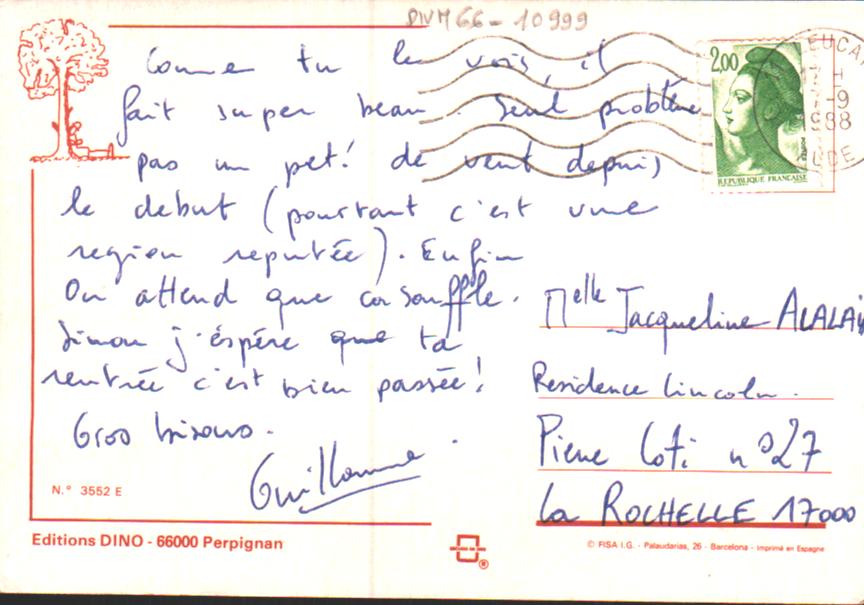 DIVM 66 - 10999
Comme tu le vois, il
fait super beau. Seul problème
pas un pet! de vent depuis
le debut (pourtant c'est une
region reputée). Enfin
On attend que ça souffle.
Sinon j'éspére que ta
rentrée c'est bien passée!
Gros bisous.
Guillaume
N.º 3552 E
Editions DINO - 66000 Perpignan
2,00
REPUBLIQUE FRANÇAISE
EUCA
-9
1988
UDE
Melle Jacqueline ALALA
Residence Lincoln.
Pierre Loti n°27
La ROCHELLE 17000
®
© FISA I.G. - Palaudarias, 26 - Barcelona - Imprimé en Espagne